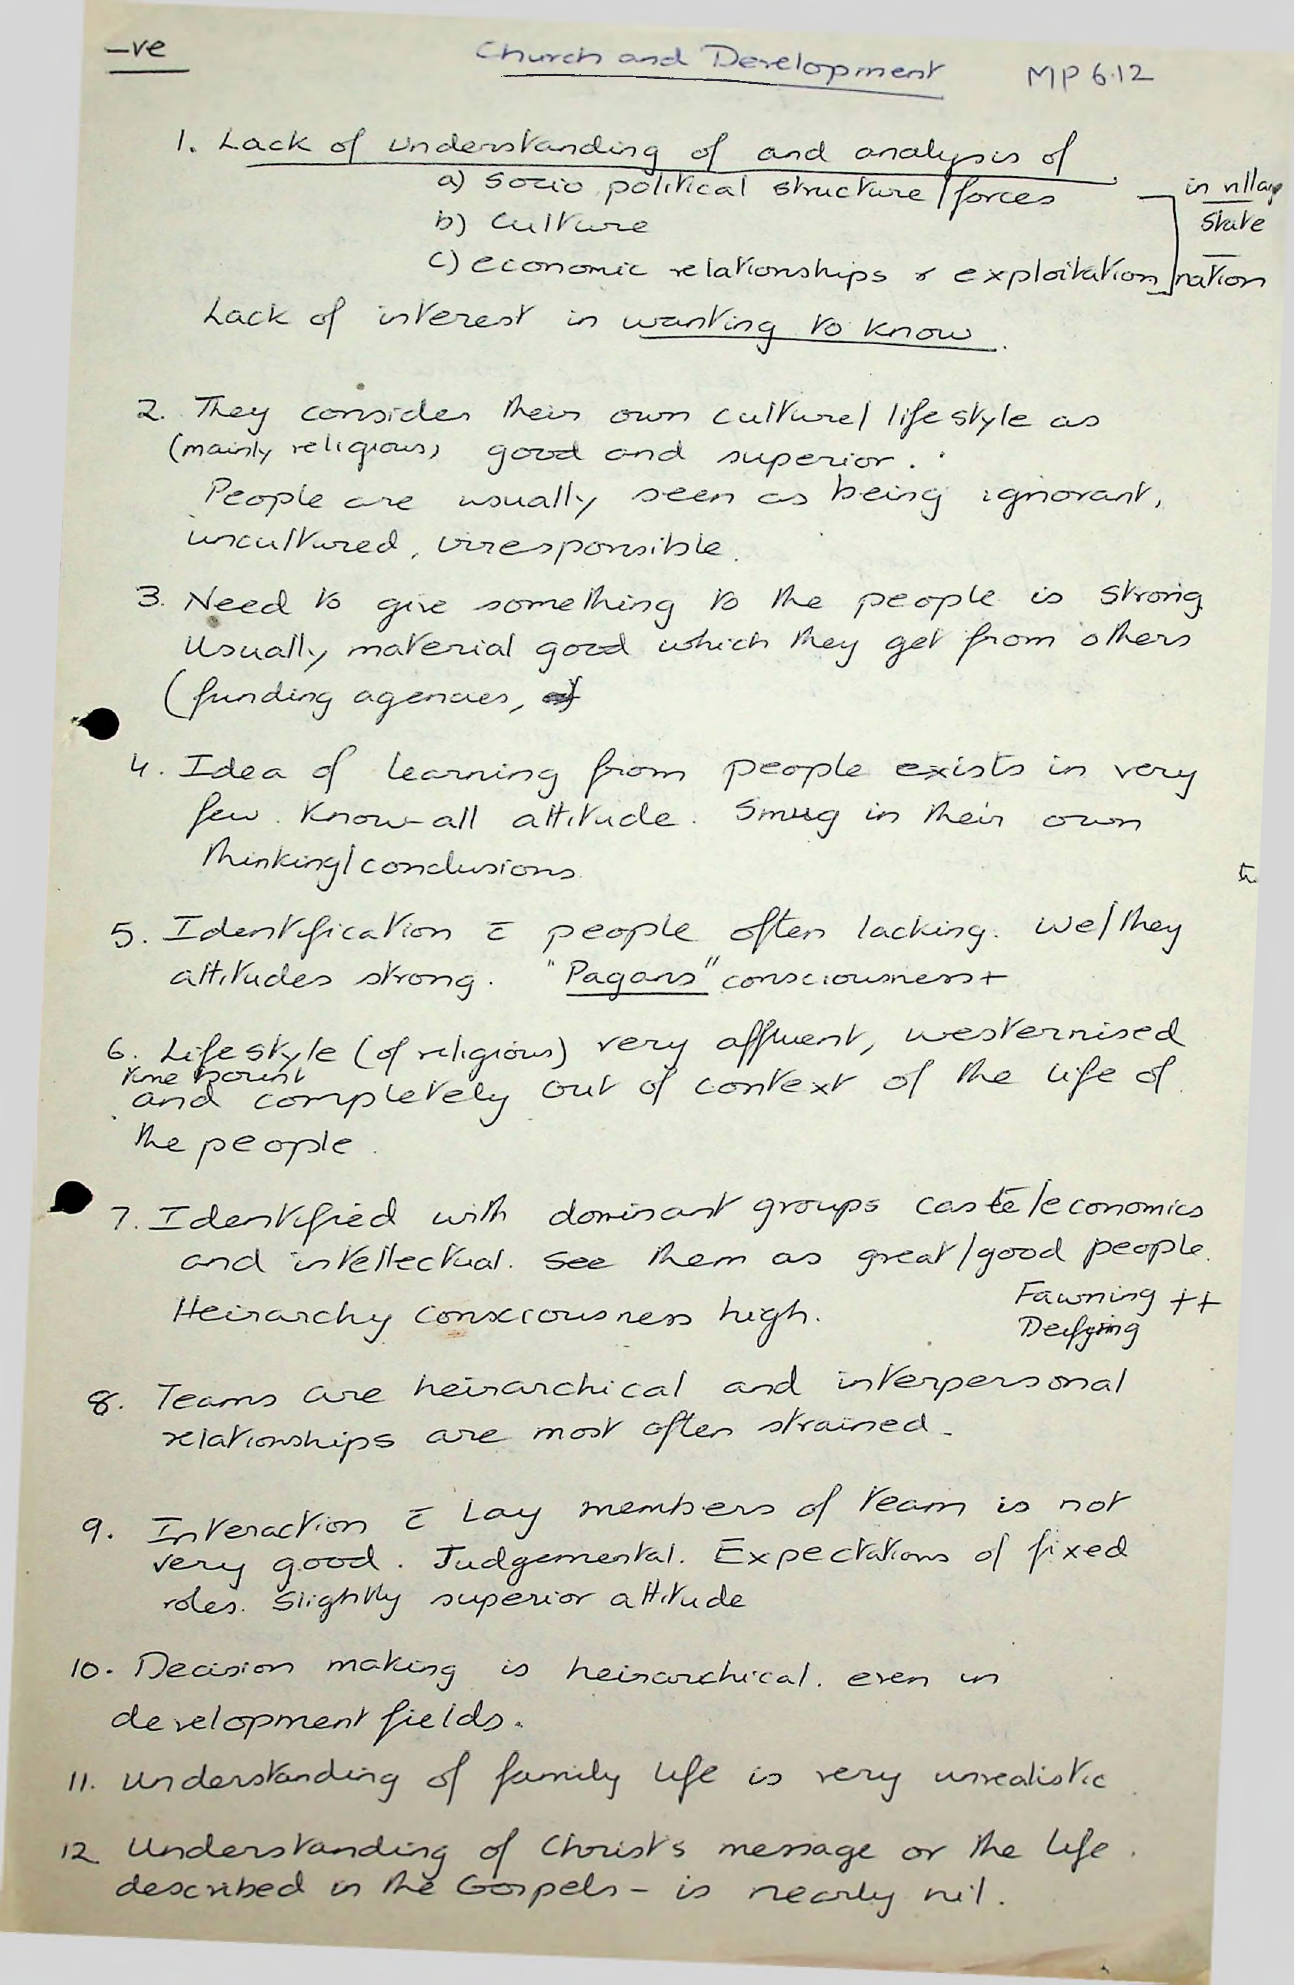 -ve
Church and Development MP 6.12
1. Lack of understanding of and analysis of
a) Socio political structure/forces in village
b) Culture State
c) economic relationships & exploitation nation
Lack of interest in wanting to know.
2. They consider their own culture/lifestyle as
(mainly religious) good and superior.
People are usually seen as being ignorant,
uncultured, irresponsible.
3. Need to give something to the people is strong
Usually material good which they get from others
(funding agencies,
4. Idea of learning from people exists in very
few. Know-all attitude. Smug in their own
thinking/conclusions.
5. Identification c̄ people often lacking. We/they
attitudes strong. "Pagans" consciousness +
6. Lifestyle (of religious) very affluent, westernised
time bound
and completely out of context of the life of
the people.
7. Identified with dominant groups caste/economics
and intellectual. See them as great/good people.
Heirarchy consciousness high. Fawning ++
Deifying
8. Teams are heirarchical and interpersonal
relationships are most often strained.
9. Interaction c̄ Lay members of team is not
very good. Judgemental. Expectations of fixed
roles. Slightly superior attitude
10. Decision making is heirarchical. even in
development fields.
11. Understanding of family life is very unrealistic
12 Understanding of Christ's message or the life
described in the Gospels - is nearly nil.